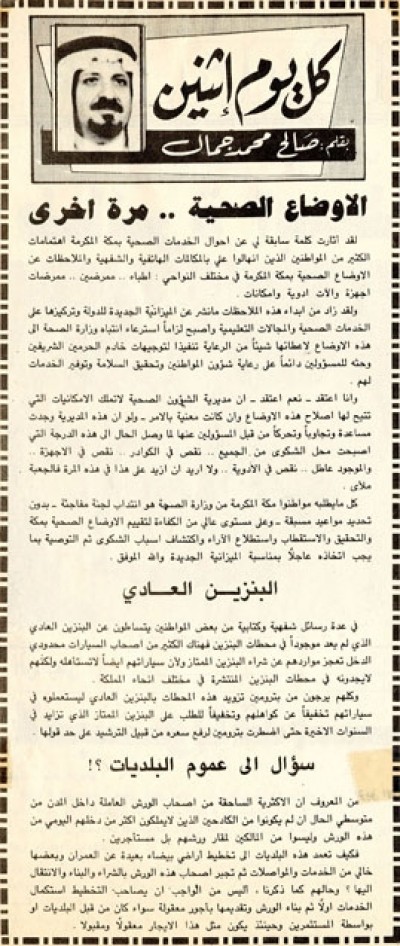 كل يوم إثنين
بقلم : صالح محمد جمال
الاوضاع الصحية .. مرة اخرى
لقد أثارت كلمة سابقة لي عن احوال الخدمات الصحية بمكة المكرمة اهتمامات
الكثير من المواطنين الذين انهالوا علي بالمكالمات الهاتفية والشفهية والملاحظات عن
الاوضاع الصحية بمكة المكرمة في مختلف النواحي : اطباء .. ممرضين .. ممرضات
اجهزة وآلات ادوية وامكانات .
ولقد زاد من ابداء هذه الملاحظات مانشر عن الميزانية الجديدة للدولة وتركيزها على
الخدمات الصحية والمجالات التعليمية واصبح لزاماً استرعاء انتباه وزارة الصحة الى
هذه الاوضاع لاعطائها شيئاً من الرعاية تنفيذا لتوجيهات خادم الحرمين الشريفين
وحثه للمسؤولين دائماً على رعاية شؤون المواطنين وتحقيق السلامة وتوفير الخدمات
لهم .
وانا اعتقد ـ نعم اعتقد ـ ان مديرية الشؤون الصحية لاتملك الامكانيات التي
تتيح لها اصلاح هذه الاوضاع وان كانت معنية بالامر ـ ولو ان هذه المديرية وجدت
مساعدة وتجاوباً وتحركاً من قبل المسؤولين عنها لما وصل الحال الى هذه الدرجة التي
اصبحت محل الشكوى من الجميع .. نقص في الكوادر .. نقص في الاجهزة ..
والموجود عاطل .. نقص في الادوية .. ولا اريد ان ازيد على هذا في هذه المرة فالجعبة
ملأى .
كل مايطلبه مواطنوا مكة المكرمة من وزارة الصحة هو انتداب لجنة مفاجئة ـ بدون
تحديد مواعيد مسبقة ـ وعلى مستوى عالي من الكفاءة لتقييم الاوضاع الصحية بمكة
والتحقيق والاستقطاب واستطلاع الآراء واكتشاف اسباب الشكوى ثم التوصية بما
يجب اتخاذه عاجلاً بمناسبة الميزانية الجديدة والله الموفق .
البنزين العادي
في عدة رسائل شفهية وكتابية من بعض المواطنين يتساءلون عن البنزين العادي
الذي لم يعد موجوداً في محطات البنزين فهناك الكثير من اصحاب السيارات محدودي
الدخل تعجز مواردهم عن شراء البنزين الممتاز ولأن سياراتهم ايضاً لاتستاهله ولكنهم
لايجدونه في محطات البنزين المنتشرة في مختلف انحاء المملكة .
وكلهم يرجون من بترومين تزويد هذه المحطات بالبنزين العادي ليستعملوه في
سياراتهم تخفيفاً عن كواهلهم وتخفيفاً للطلب على البنزين الممتاز الذي تزايد في
السنوات الاخيرة حتى اضطرت بترومين لرفع سعره من قبيل الترشيد على حد قولها .
سؤال الى عموم البلديات ؟!
من المعروف ان الاكثرية الساحقة من اصحاب الورش العاملة داخل المدن من
متوسطي الحال ان لم يكونوا من الكادحين الذين لايملكون اكثر من دخلهم اليومي من
هذه الورش وليسوا من المالكين لمقار ورشهم بل مستأجرين .
فكيف تعمد هذه البلديات الى تخطيط أراضي بيضاء بعيدة عن العمران وبعضها
خالي من الخدمات والمواصلات ثم تجبر اصحاب هذه الورش بالشراء والبناء والانتقال
اليها ؟ وحالهم كما ذكرنا ، اليس من الواجب ان يصاحب التخطيط استكمال
الخدمات اولاً ثم بناء الورش وتقديمها بأجور معقولة سواء كان من قبل البلديات او
بواسطة المستثمرين وحينئذ يكون مثل هذا الايجار معقولاً ومقبولا .